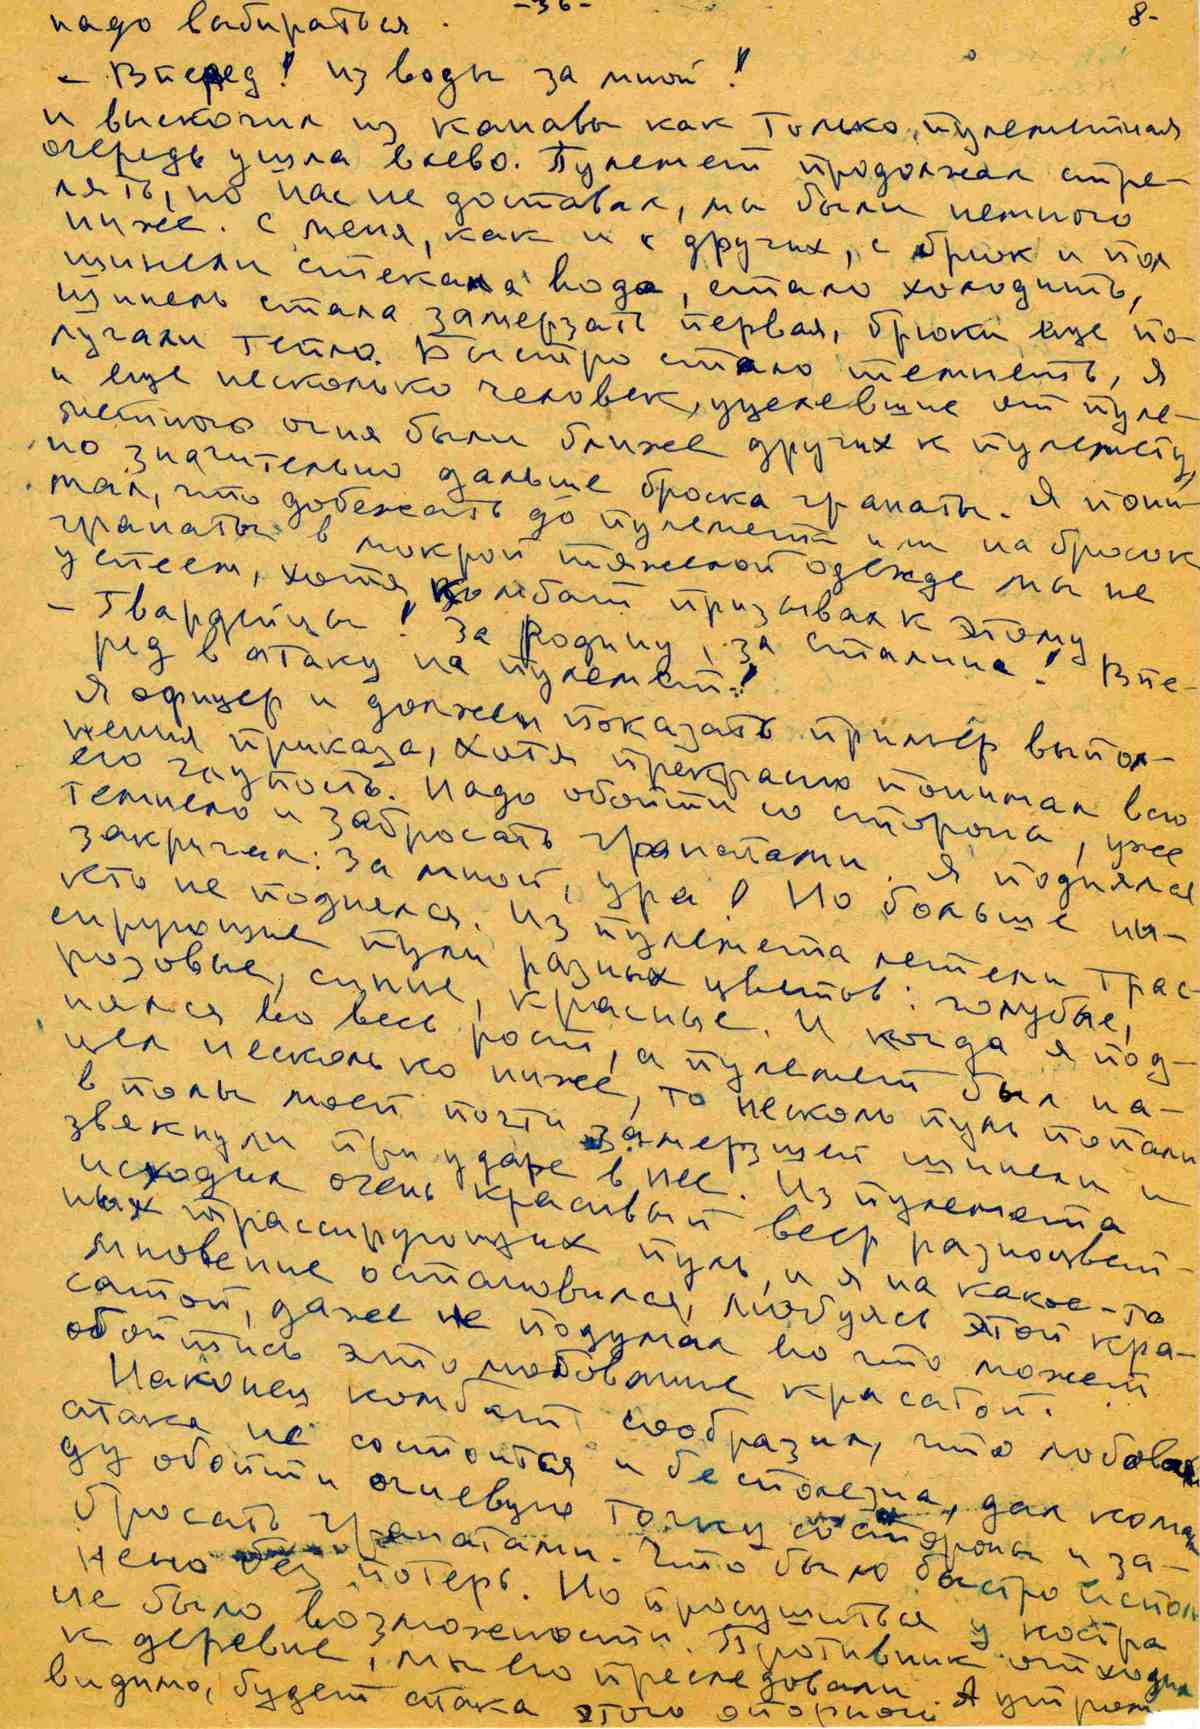 -36- 8-
надо выбираться.
- Вперед! из воды за мной!
и выскочил из канавы как только, пулеметная
очередь ушла влево. Пулемет продолжал стре-
лять, но нас не доставал, мы были немного
ниже. С меня, как и с других, с брюк и пол
шинели стекала вода, стало холодить,
шинель стала замерзать первая, брюки еще по-
лучали тепло. Быстро стало темнеть, я
и еще несколько человек, уцелевшие от пуле-
метного огня были ближе других к пулемету,
но значительно дальше броска гранаты. Я пони-
мал, что добежать до пулемета или на бросок
гранаты в мокрой тяжелой одежде мы не
успеем, хотя комбат призывал к этому
- Гвардейцы! За Родину, за Сталина! Впе-
ред в атаку на пулемет!
Я офицер и должен показать пример выпол-
нения приказа, хотя прекрасно понимал всю
его глупость. Надо обойти со сторона, уже
темнело и забросать гранатами. Я поднялся
закричал: За мной, ура! Но больше ни-
кто не поднялся. Из пулемета летели трас-
сирующие пули разных цветов: голубые,
розовые, синие, красные. И когда я под-
нялся во весь рост, а пулемет был на-
цел несколько ниже, то несколь пуль попали
в полы моей почти замерзшей шинели и
звякнули при ударе в нее. Из пулемета
исходил очень красивый веер разноцвет-
ных трассирующих пуль, и я на какое-то
мновение остановился, любуясь этой кра-
сатой, даже не подумал во что может
обойтись это любование красатой.
Наконец комбат сообразил, что лобовая
атака не состоится и бесполезна, дал коман
ду обойти огневую точку со стороны и за-
бросать гранатами. Что было быстро испол
нено без потерь. Но просушиться у костра
не было возможности. Противник отходил
к деревне, мы его преследовали. А утром
видимо, будет атака этого опорного